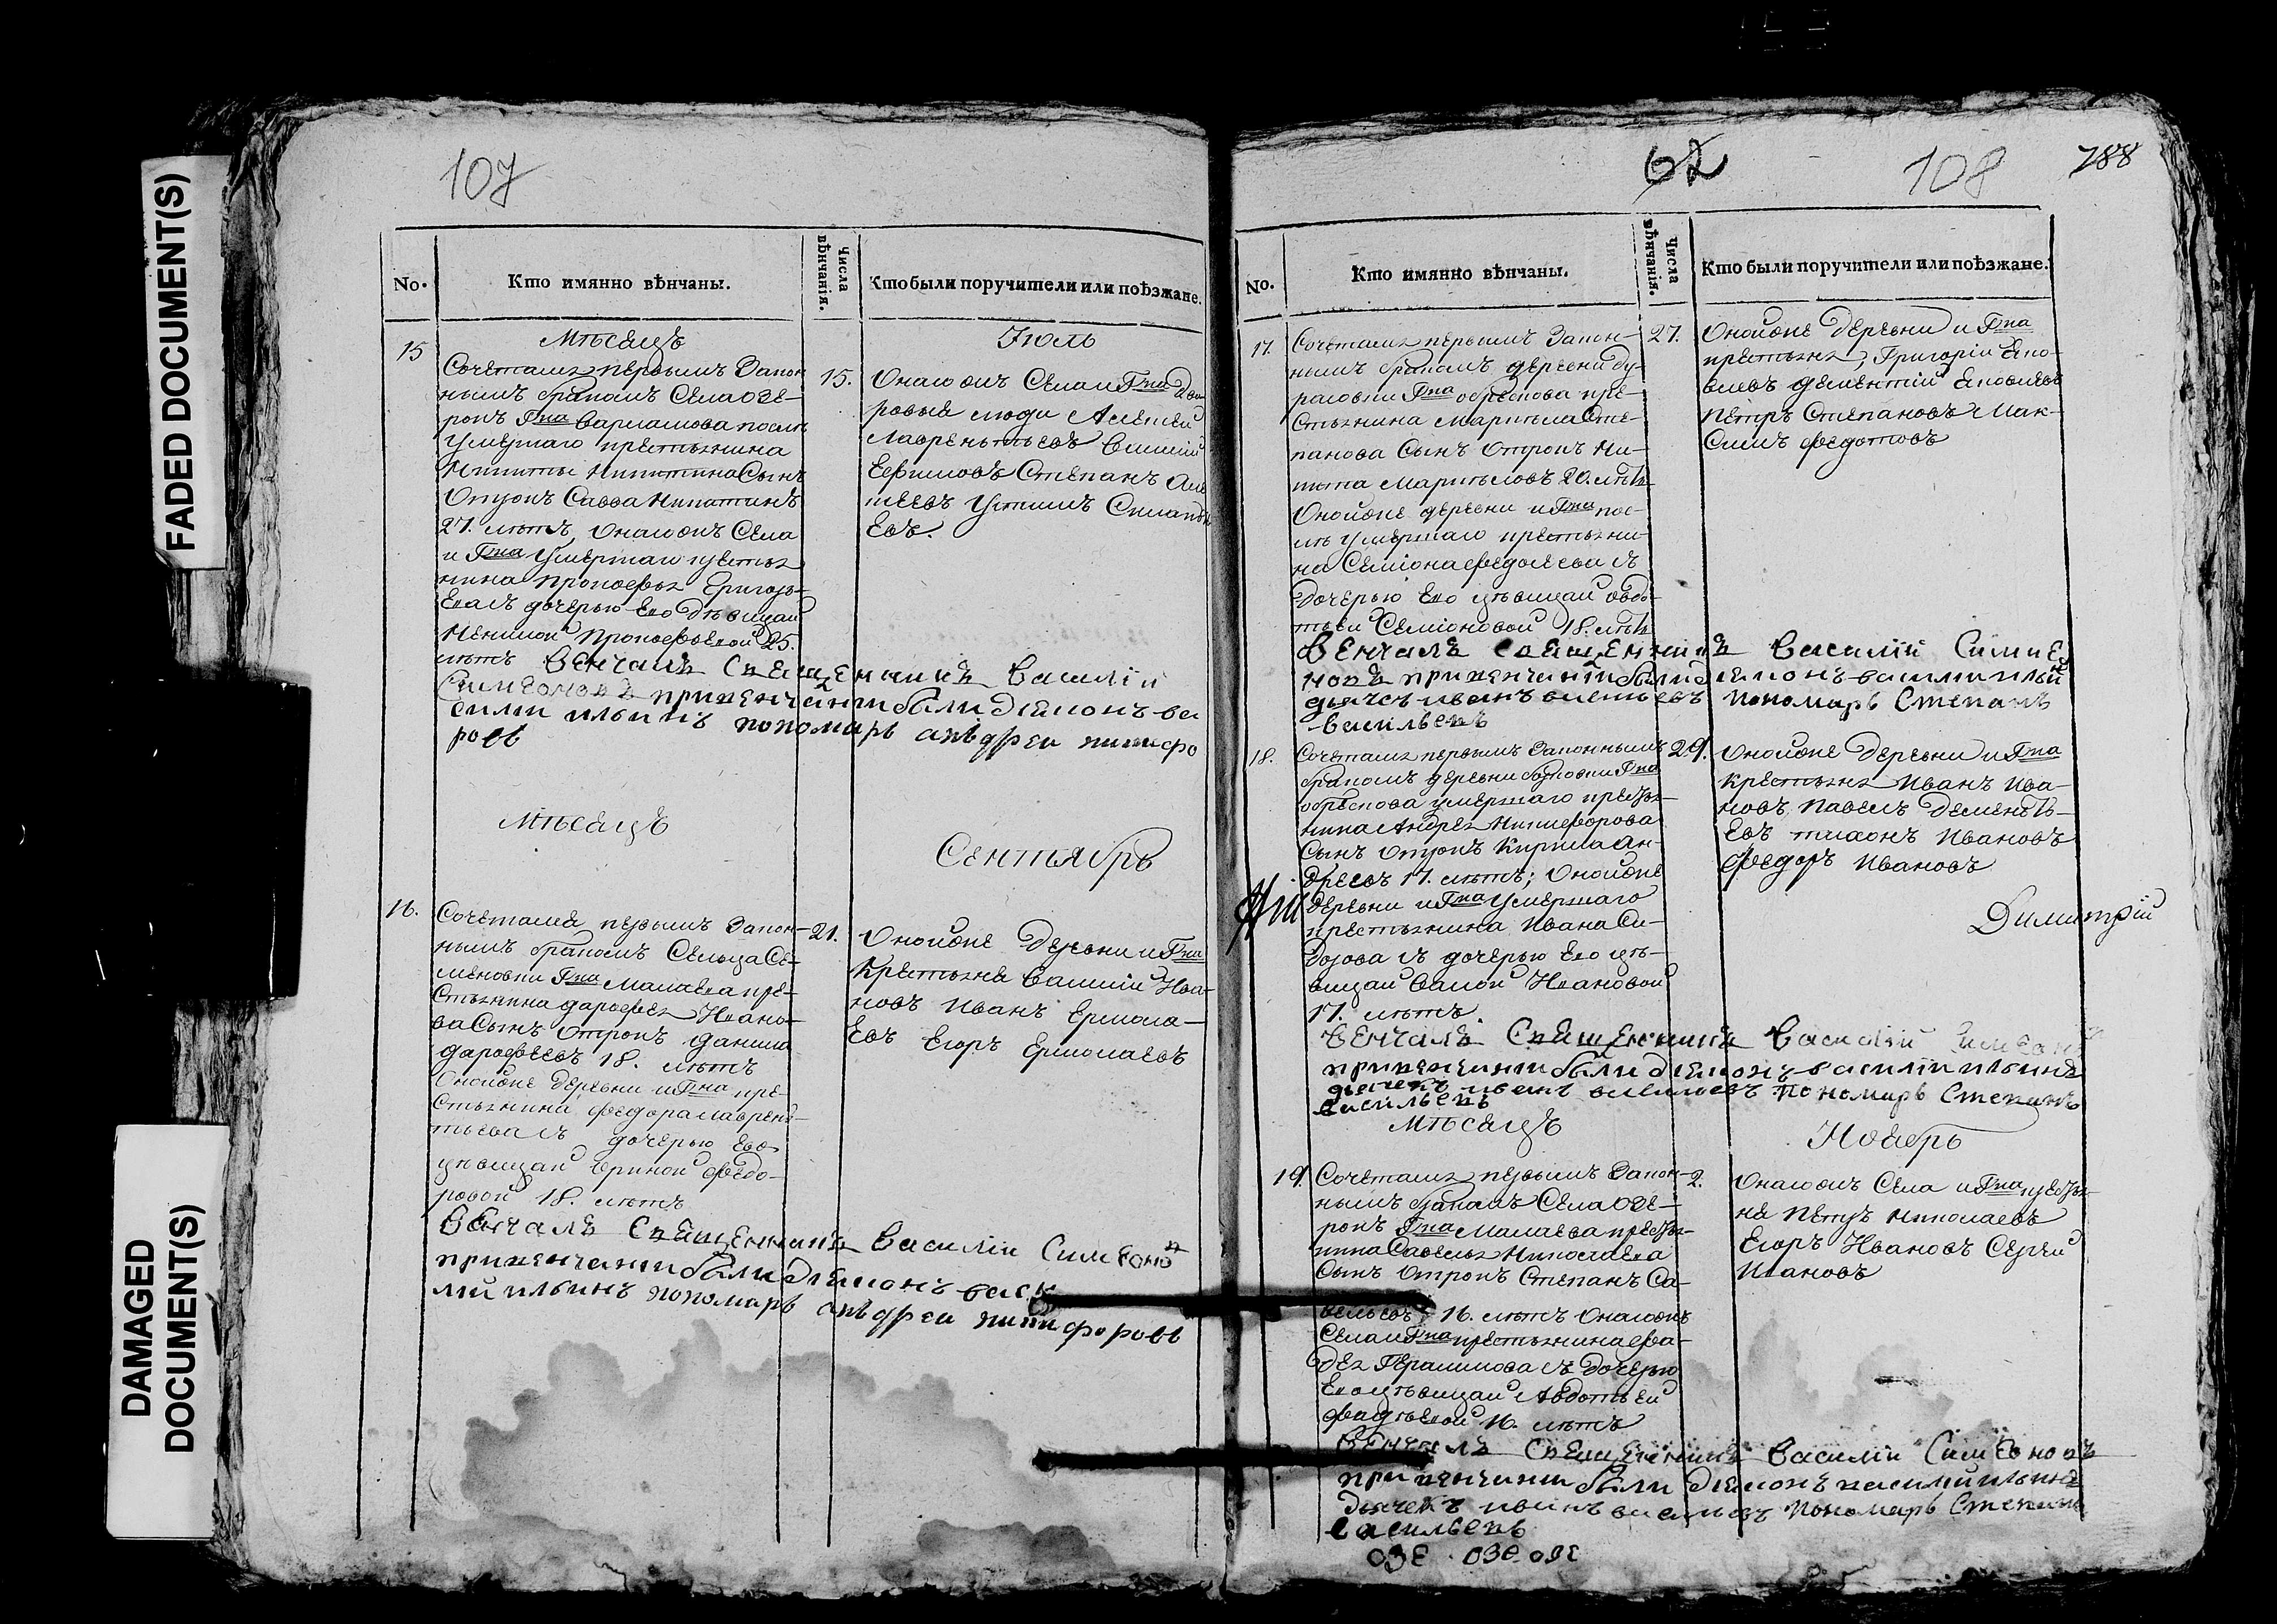 FADED DOCUMENT(S)
DAMAGED
DOCUMENT(S)
107
No.
Кто имянно вѣнчаны.
Числа
вѣнчанія.
Кто были поручители или поѣзжане.
Мѣсецъ
Июль
15
Сочетался первымъ Закон
нымъ бракомъ Села Озе-
рокъ Гдна Варламова после
умершаго крестьянина
Никиты Никитина Сынъ
Отрокъ Савва Никитинъ
27. летъ, Онагожъ Села
и Гдна Умершаго кресть
нина Прокофья Григорь-
Ева съ дочерью Ево девицаи
Прокофьевои 25.
летъ
15.
Онагожъ Села и Гдна Дво
ровыя люди Алексеи
Лаврентьевъ Василии
Ефимовъ Степанъ Але
ксеевъ
Евъ.
Венчалъ Священникъ Василiи
Симеоновъ привенчании были дiеконъ ва
сили ильинъ пономарь андреи никифо
ровъ
Мѣсецъ
Сентябрь
16.
Сочетался первымъ Закон-
нымъ бракомъ Сельца Се-
меновки Гдна Малаева кре-
стьянина Дарофея Ивано-
ва Сынъ Отрокъ Данила
Дарофеевъ 18. летъ
Онойже деревни и Гдна кре-
стьянина Федора Лаврен-
тьева съ дочерью Ево
девицаи Ориной Федо-
ровой 18. летъ
21.
Онойже деревни и Гдна
Крестьяне Василий Ива-
новъ Иванъ Ермола-
Евъ Егоръ Ермолаевъ
Венчалъ Священникъ Василiи Симеоновъ
привенчании были дiеконъ васи
лий ильинъ пономарь андреи никифоровъ
62
108
788
No.
Кто имянно вѣнчаны.
Числа
вѣнчанія.
Кто были поручители или поѣзжане.
17.
Сочетался первымъ Закон-
нымъ бракомъ деревни Ду-
Гдна Обрескова кре-
стьянина Сте-
панова Сынъ Отрокъ Ни-
кита 20. летъ
Онойже деревни и Гдна пос-
ле умершаго крестьяни
на Семiона съ
дочерью Ево девицаи Овдо-
тьей Семiоновой 18. летъ
27.
Онойже деревни и Гдна
крестьяне, Григорiи Яко-
влевъ Дементий Яковлевъ
Петръ Степановъ Мак-
симъ Федотовъ
Венчалъ Священникъ Василiи Симео
новъ привенчании были дiеконъ василий ильинъ
дьячекъ иванъ пономарь Степанъ
васильевъ
18.
Сочетался первымъ Законнымъ
бракомъ деревни Гдна
Обрескова умершаго кресть-
нина Андрея Никифорова
Сынъ Отрокъ Кирила Ан-
дреевъ 17. летъ; Онойже
деревни и Гдна Умершаго
крестьянина Ивана Си-
дорова съ дочерью Ево де-
вицаи Ивановой
17. летъ.
29.
Онойже деревни и Гдна
Крестьяне Иванъ Ива-
новъ Павелъ Дементь-
Евъ Ивановъ
Федоръ Ивановъ
Димитрiй
Венчалъ Священникъ Василий Симеоновъ
привенчании были дiеконъ василiи ильинъ
дьячекъ иванъ пономарь Степанъ
васильевъ
Мѣсецъ
Ноябрь
19.
Сочетался первымъ Закон-
нымъ бракомъ Села Озе-
рокъ Гдна Малаева кресть-
нина Савелья Николаева
Сынъ Отрокъ Степанъ Са-
вельевъ 16. летъ Онагожъ
Села и Гдна крестьянина Фа-
дея Герасимова съ дочерью
Ево девицаи Авдотьей
Фадеевой 16. летъ
2.
Онагожъ Села и Гдна кресть-
не Петръ Николаевъ
Егоръ Ивановъ Сергей
Ивановъ
Венчалъ Священникъ Василiи Симеоновъ
привенчании были дiеконъ василий ильинъ
дьячекъ иванъ пономарь Степанъ
васильевъ